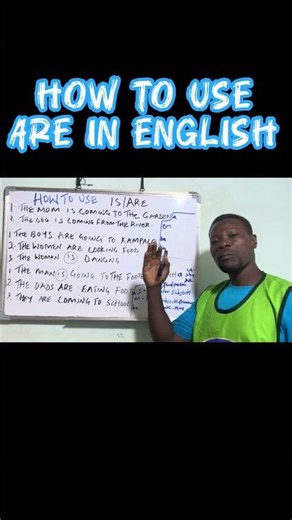 HOW TO USE
ARE IN ENGLISH
HOW TO USE IS/ARE
1. THE MOM IS COMING TO THE GARDEN
2. THE DOG IS COMING FROM THE RIVER
1. THE BOYS ARE GOING TO KAMPALA
2. THE WOMEN ARE COOKING FOOD
3. THE WOMAN IS DANCING
1. THE MAN IS GOING TO THE FOOT
2. THE DADS ARE EATING FOOD
3. THEY ARE COMING TO SCHOOL